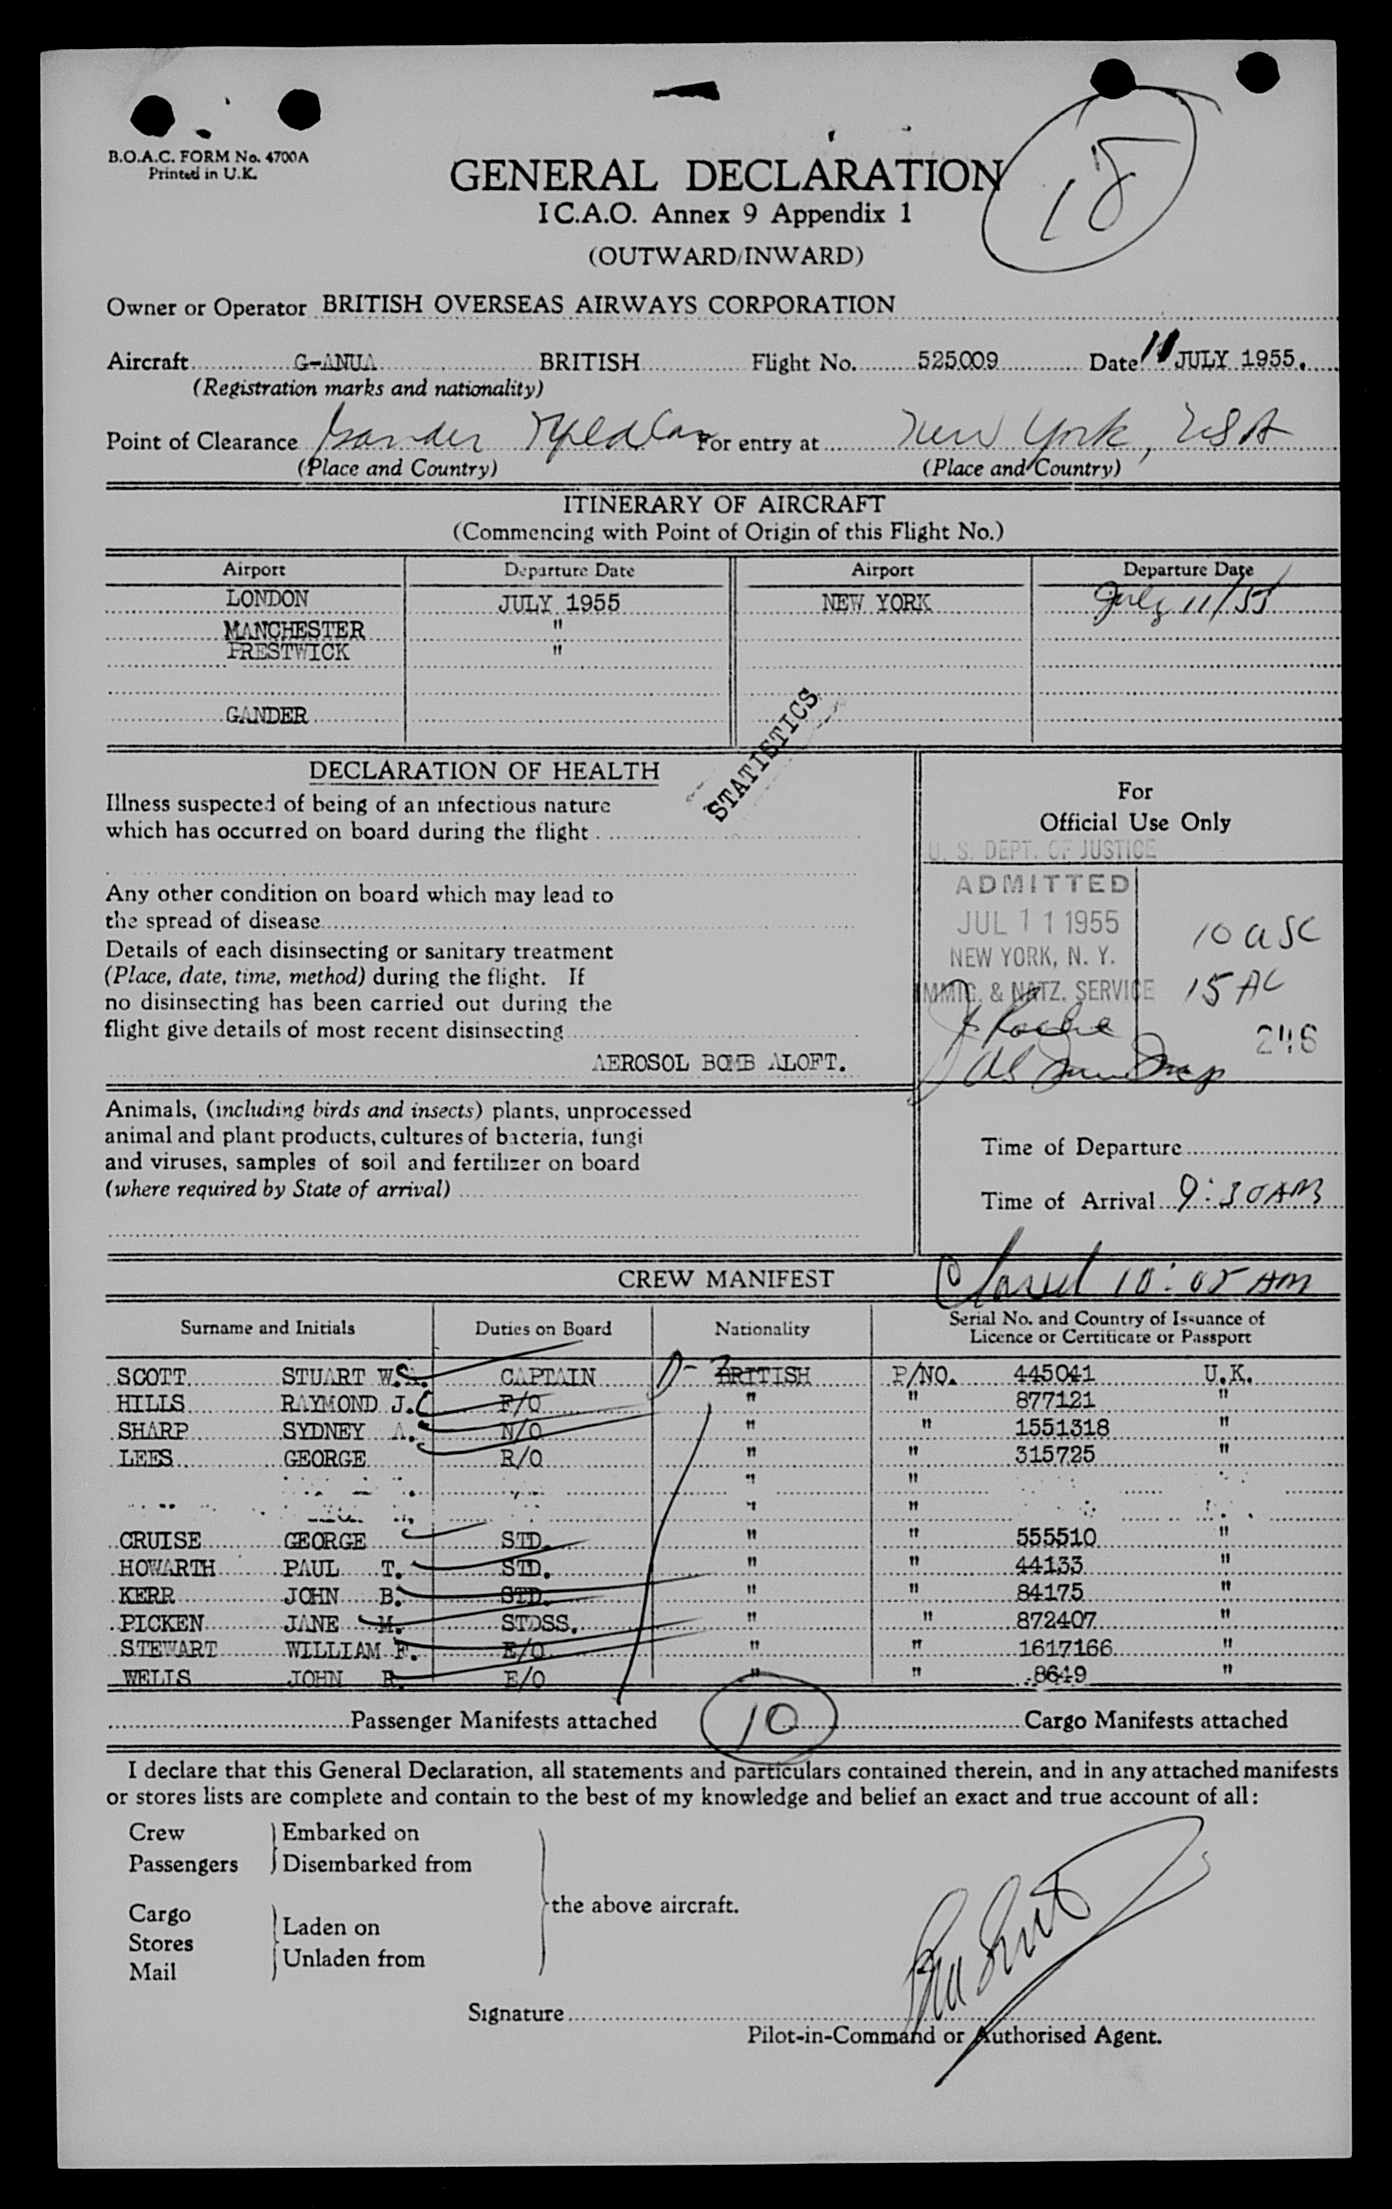 18
B.O.A.C. FORM No. 4700A
Printed in U.K.
GENERAL DECLARATION
I C.A.O. Annex 9 Appendix 1
(OUTWARD/INWARD)
Owner or Operator BRITISH OVERSEAS AIRWAYS CORPORATION
Aircraft G-ANUA BRITISH Flight No. 525009 Date 11 JULY 1955.
(Registration marks and nationality)
Point of Clearance Gander Nfld Can For entry at New York, USA
(Place and Country) (Place and Country)
ITINERARY OF AIRCRAFT
(Commencing with Point of Origin of this Flight No.)
Airport Departure Date Airport Departure Date
LONDON JULY 1955 NEW YORK July 11/55
MANCHESTER "
PRESTWICK "
GANDER
STATISTICS
DECLARATION OF HEALTH
Illness suspected of being of an infectious nature
which has occurred on board during the flight
Any other condition on board which may lead to
the spread of disease
Details of each disinsecting or sanitary treatment
(Place, date, time, method) during the flight. If
no disinsecting has been carried out during the
flight give details of most recent disinsecting
AEROSOL BOMB ALOFT.
Animals, (including birds and insects) plants, unprocessed
animal and plant products, cultures of bacteria, fungi
and viruses, samples of soil and fertilizer on board
(where required by State of arrival)
For
Official Use Only
U. S. DEPT. OF JUSTICE
ADMITTED
JUL 11 1955
NEW YORK, N. Y.
IMMIG. & NATZ. SERVICE
10 a SC
15 AC
246
Time of Departure
Time of Arrival 9:30 AM
Closed 10:05 AM
CREW MANIFEST
Surname and Initials Duties on Board Nationality Serial No. and Country of Issuance of
Licence or Certificate or Passport
SCOTT STUART W.S. CAPTAIN BRITISH P/NO. 445041 U.K.
HILLS RAYMOND J. F/O " " 877121 "
SHARP SYDNEY A. N/O " " 1551318 "
LEES GEORGE R/O " " 315725 "
" "
" "
CRUISE GEORGE STD. " " 555510 "
HOWARTH PAUL T. STD. " " 44133 "
KERR JOHN B. STD. " " 84175 "
PICKEN JANE M. STDSS. " " 872407 "
STEWART WILLIAM F. E/O " " 1617166 "
WELLS JOHN R. E/O " " 8649 "
Passenger Manifests attached 10 Cargo Manifests attached
I declare that this General Declaration, all statements and particulars contained therein, and in any attached manifests
or stores lists are complete and contain to the best of my knowledge and belief an exact and true account of all:
Crew
Passengers
Embarked on
Disembarked from
Cargo
Stores
Mail
Laden on
Unladen from
the above aircraft.
Signature
Pilot-in-Command or Authorised Agent.